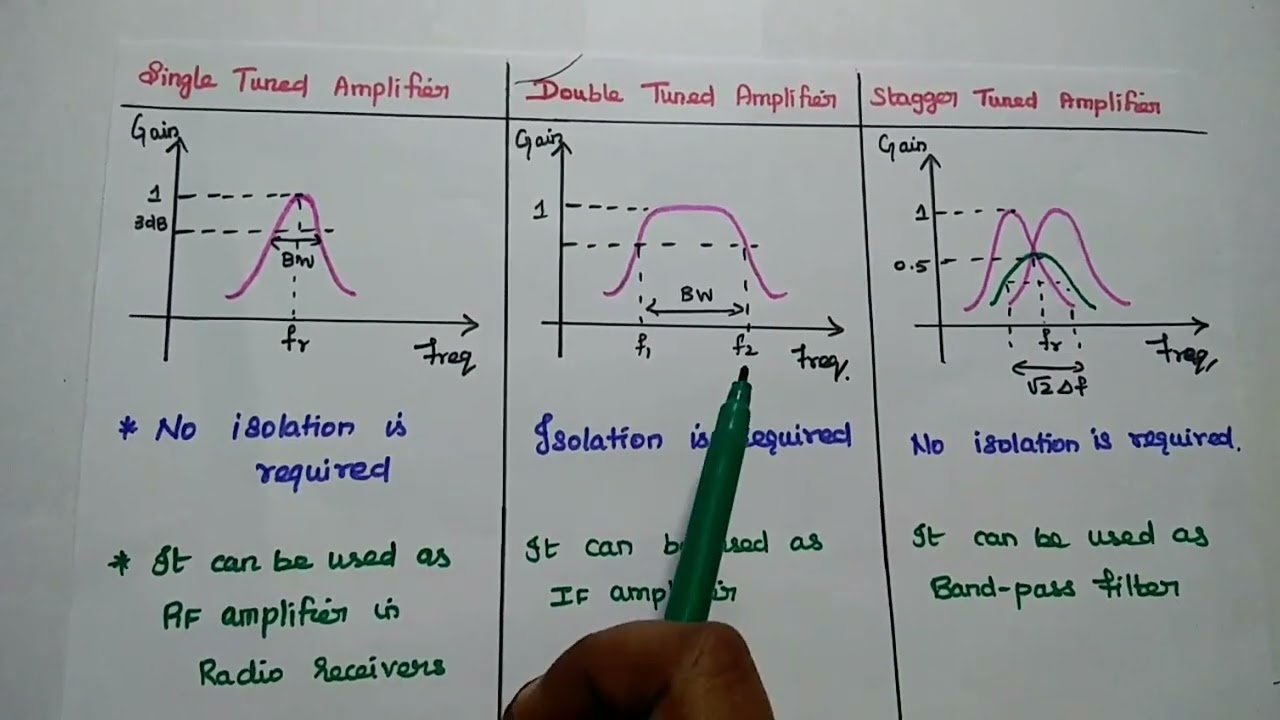 Single Tuned Amplifier
Gain
1
3dB
BW
fr
Freq
* No isolation is
required
* It can be used as
RF amplifier in
Radio receivers
Double Tuned Amplifier
Gain
1
BW
f1
f2
Freq.
Isolation is required
It can be used as
IF amplifier
Stagger Tuned Amplifier
Gain
1
0.5
fr
Freq,
√2 Δf
No isolation is required.
It can be used as
Band-pass filter